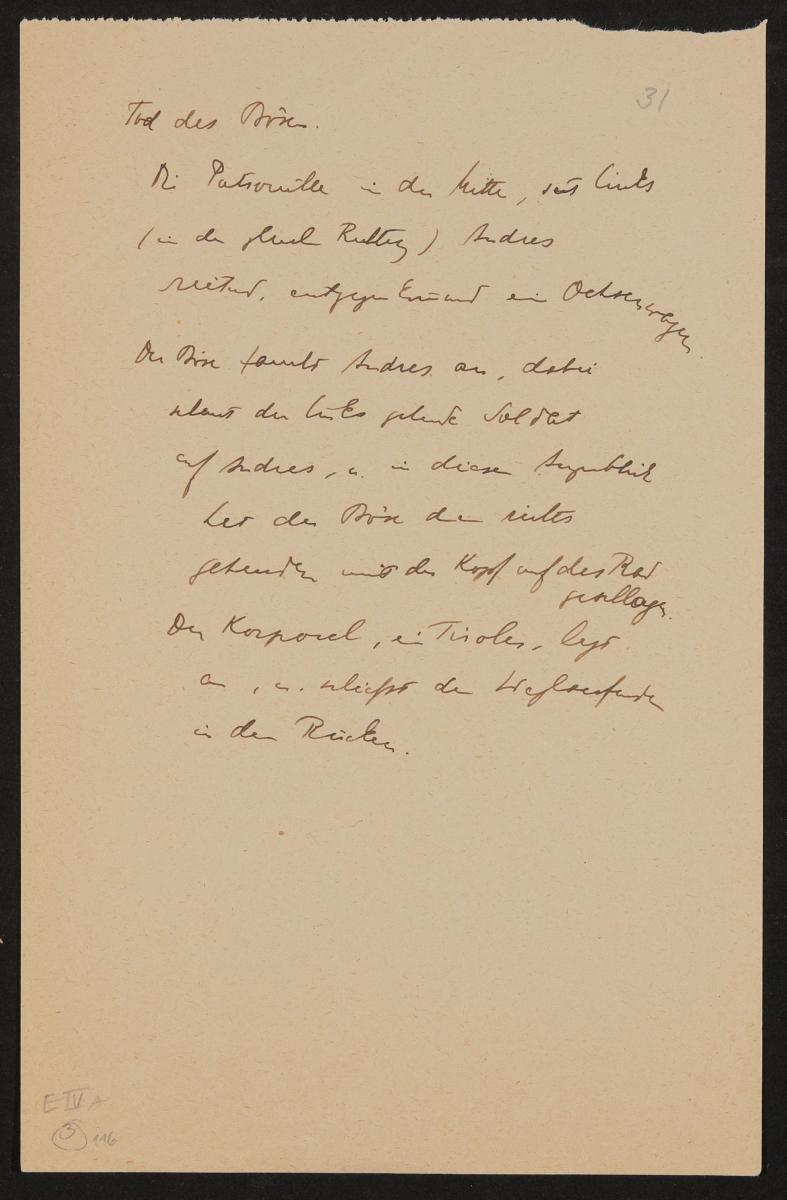 31
Tod des Bösen.
Die Patrouille in der Mitte, seits links
(in der gleich Richtung) Andres
reitend, entgegenkommend ein Ochsenwagen.
Der Böse Andres an, dabei
schaut der links gehende Soldat
auf Andres, u. in diesem Augenblick
hat der Böse den rechts
gehenden mit dem Kopf auf das Rad
geschlagen.
Der Korporal, ein Tiroler, legt
an, u. schießt den Weglaufenden
in den Rücken.
E IV A
3 116